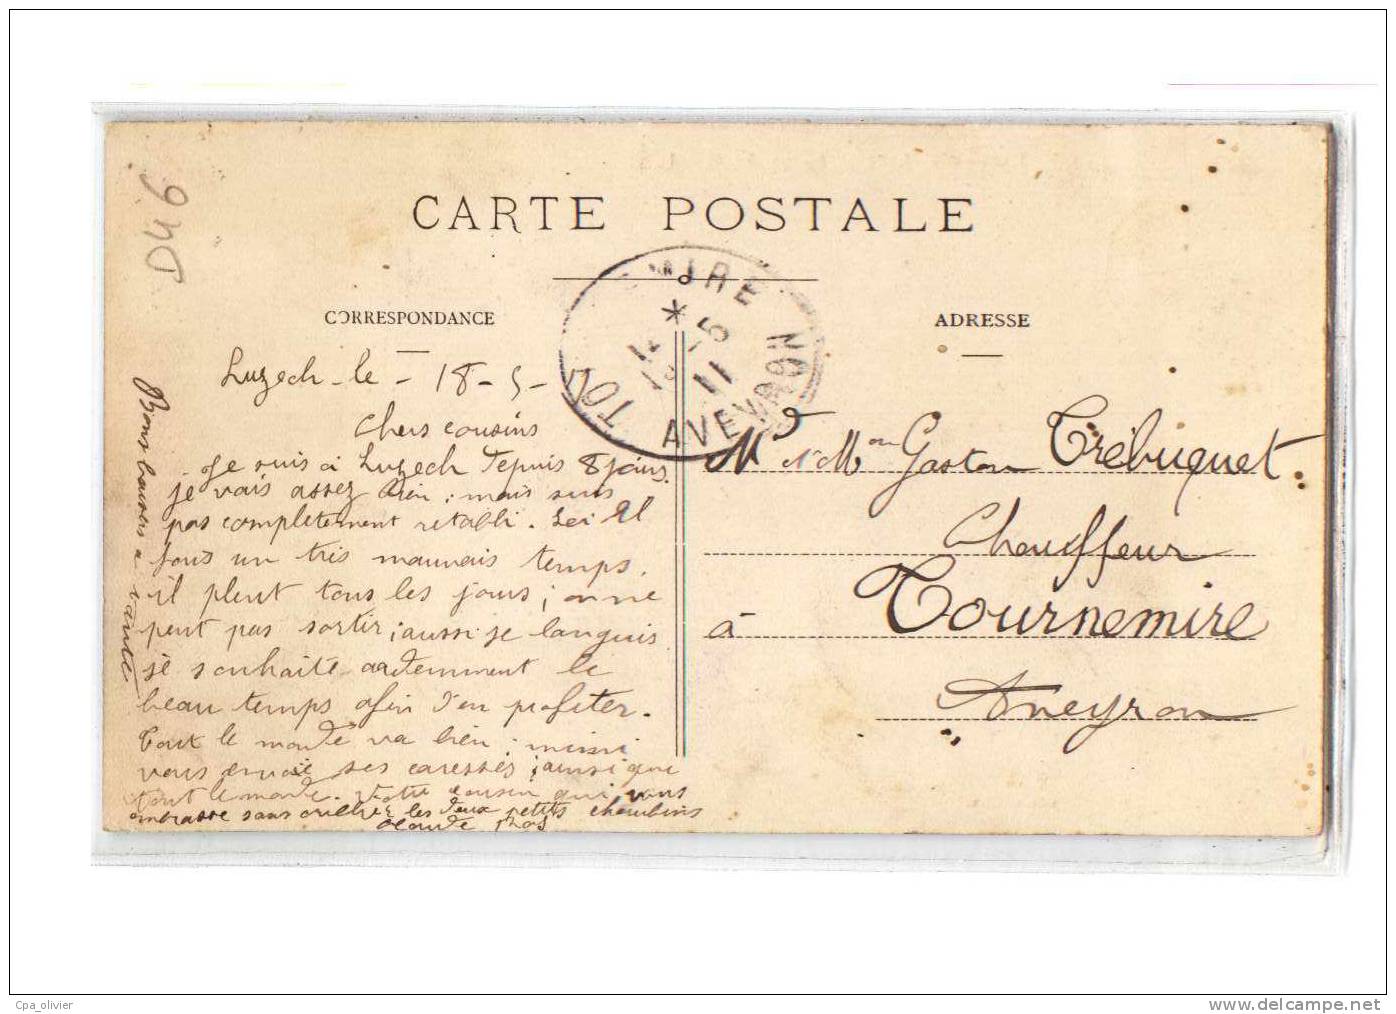 CARTE POSTALE
CORRESPONDANCE
Luzech - le - 18 - 5 -
Chers cousins
Je suis à Luzech depuis 8 jours.
je vais assez bien ; mais suis
pas completement retabli. Ici il
fous un tres mauvais temps.
il pleut tous les jours ; on ne
peut pas sortir ; aussi je languis
je souhaite ardemment le
beau temps afin d'en profiter.
Tout le monde va bien ; mimi
vous envoie ses caresses ; ainsi que
tout le monde. Votre cousin qui vous
embrasse sans oublier les deux petits cherubins
Bons baisers a
940
TOU MIRE
* 12 5
11
AVEYRON
ADRESSE
Mr et Mon Gaston Trébuquet
Chauffeur
à Tournemire
Aveyron
Cpa_olivier
www.delcampe.net